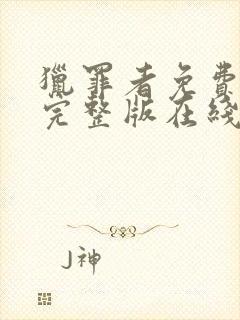 獵罪者免費
完整版在綫
J神